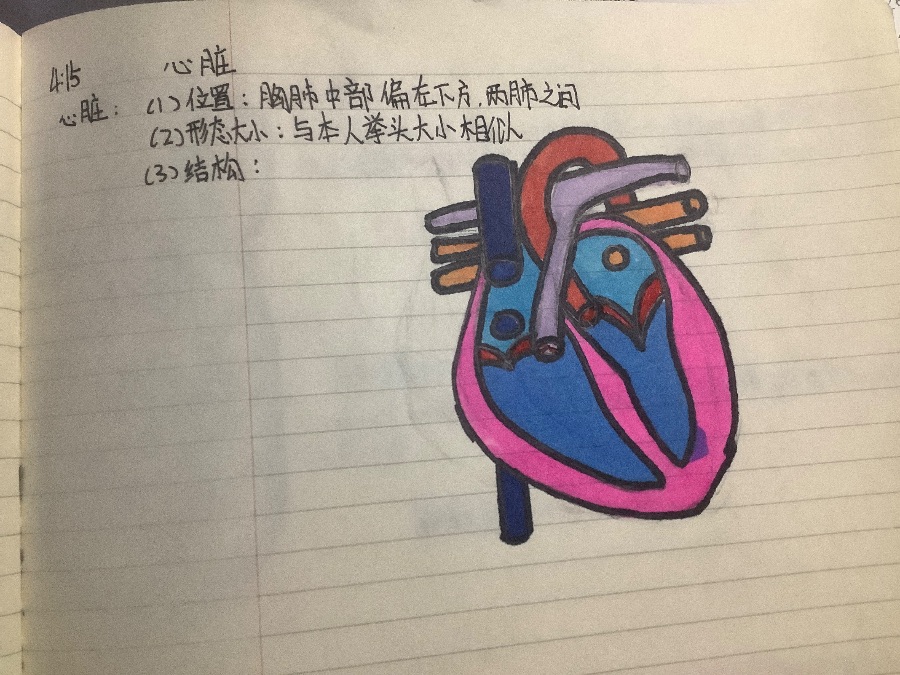 4.15 心脏
心脏：(1)位置：胸肺中部偏左下方，两肺之间
(2)形态大小：与本人拳头大小相似
(3)结构：